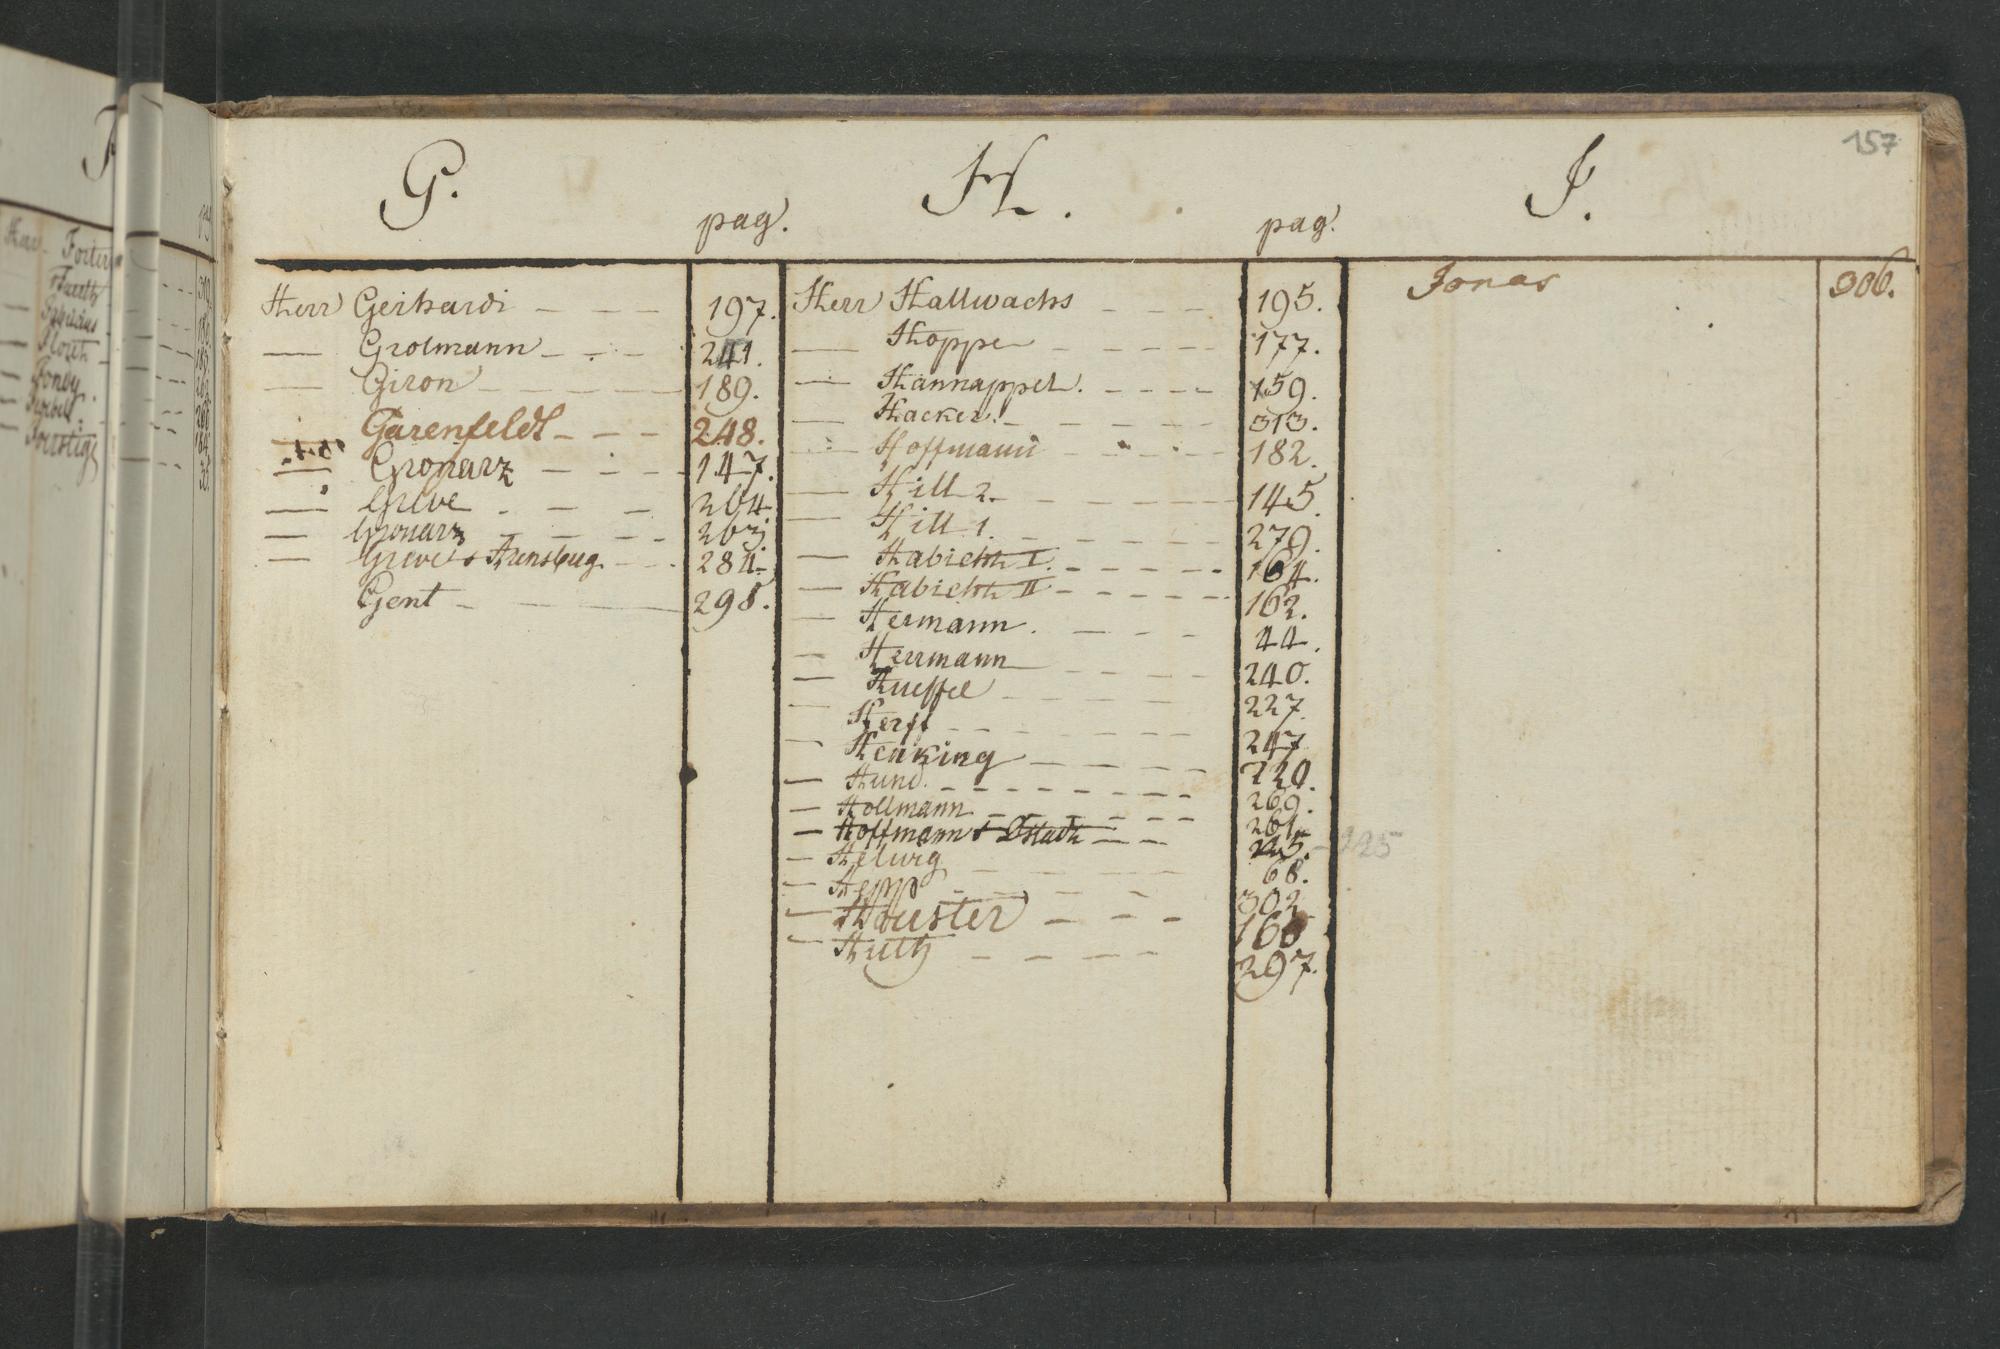 157
G.
pag.
Herr Gerhardi - - - 197.
— Grolmann - - - 241.
— Giron - - - 189.
Garenfeldt - - - 248.
— Gronarz - - - 147.
— Greve - - - 264
— Gronarz - - - 263.
— Greve Arensbug - - - 284.
Gent - - - 298.
H.
pag.
Herr Hallwachs - - - 195.
— Hoppe - - - 177.
— Hannappel. - - - 159.
— Hacker. - - - 313.
Hoffmann - - - 182.
— Hill 2. - - - 145.
— Hill 1. - - - 279.
— Habicht I. - - - 164.
— Habicht II - - - 162.
— Hermann. - - - 44.
— Herrmann - - - 240.
— Hueffel - - - 227.
— Herft - - - 247
— Henking - - - 220.
— Hund. - - - 269.
— Hollmann - - - 261.
— Hoffmann - - - 225
— Helwig - - - 68.
— Hepp - - - 302
— Houster - - - 160
— Huth - - - 297.
J.
Jonas 306.
Forster
Fuerth